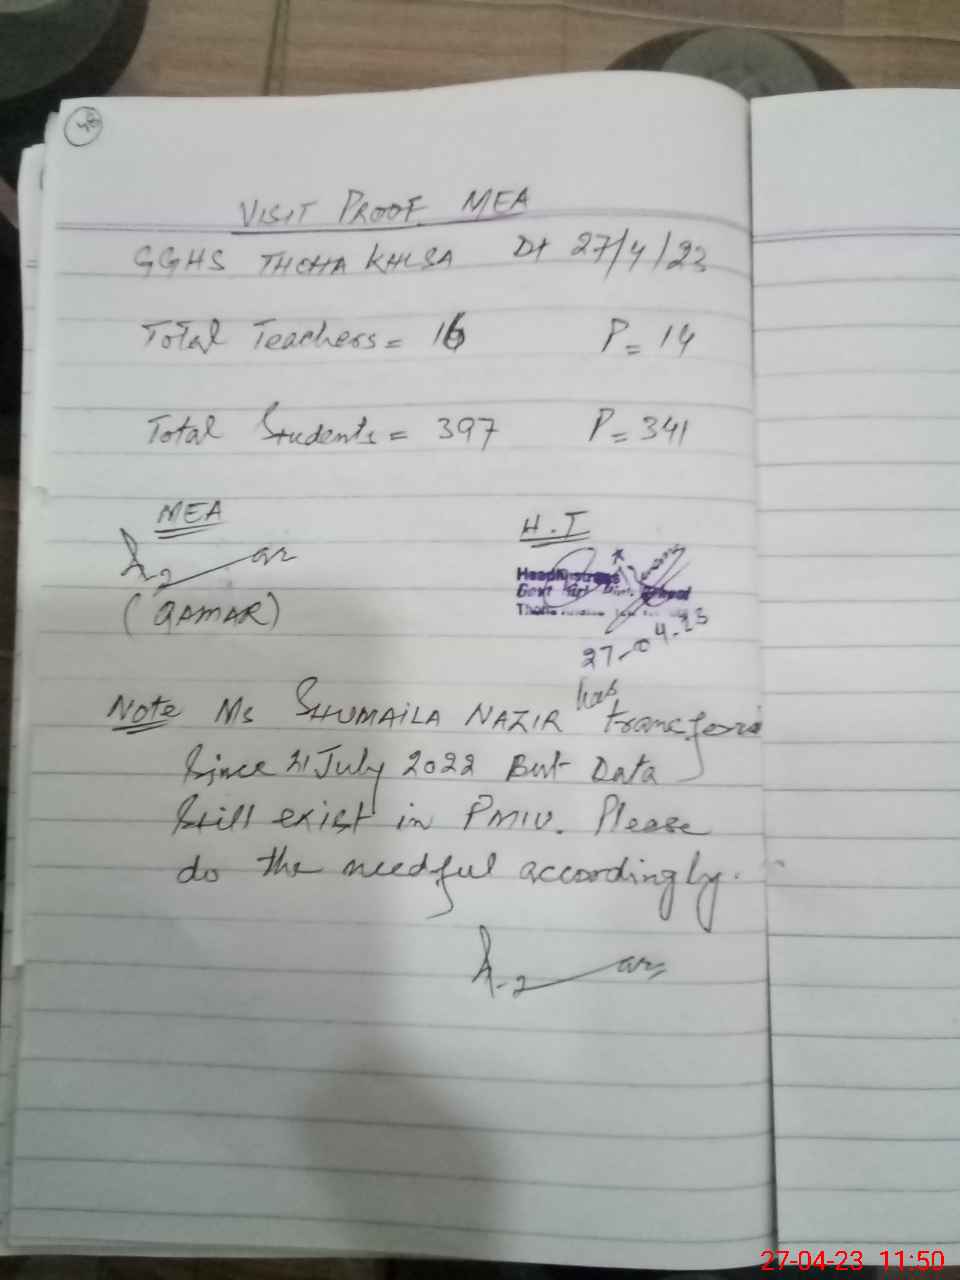 VISIT PROOF MEA
GGHS THOHA KHLSA Dt 27/4/23
Total Teachers = 16 P = 14
Total Students = 397 P = 341
MEA H.I
(QAMAR)
Headmistress
Govt Girl High School
27-04-23
Note Ms SHUMAILA NAZIR has transferd
Since 21 July 2022 But Data
Still exist in PMIU. Please
do the needful accordingly.
27-04-23 11:50